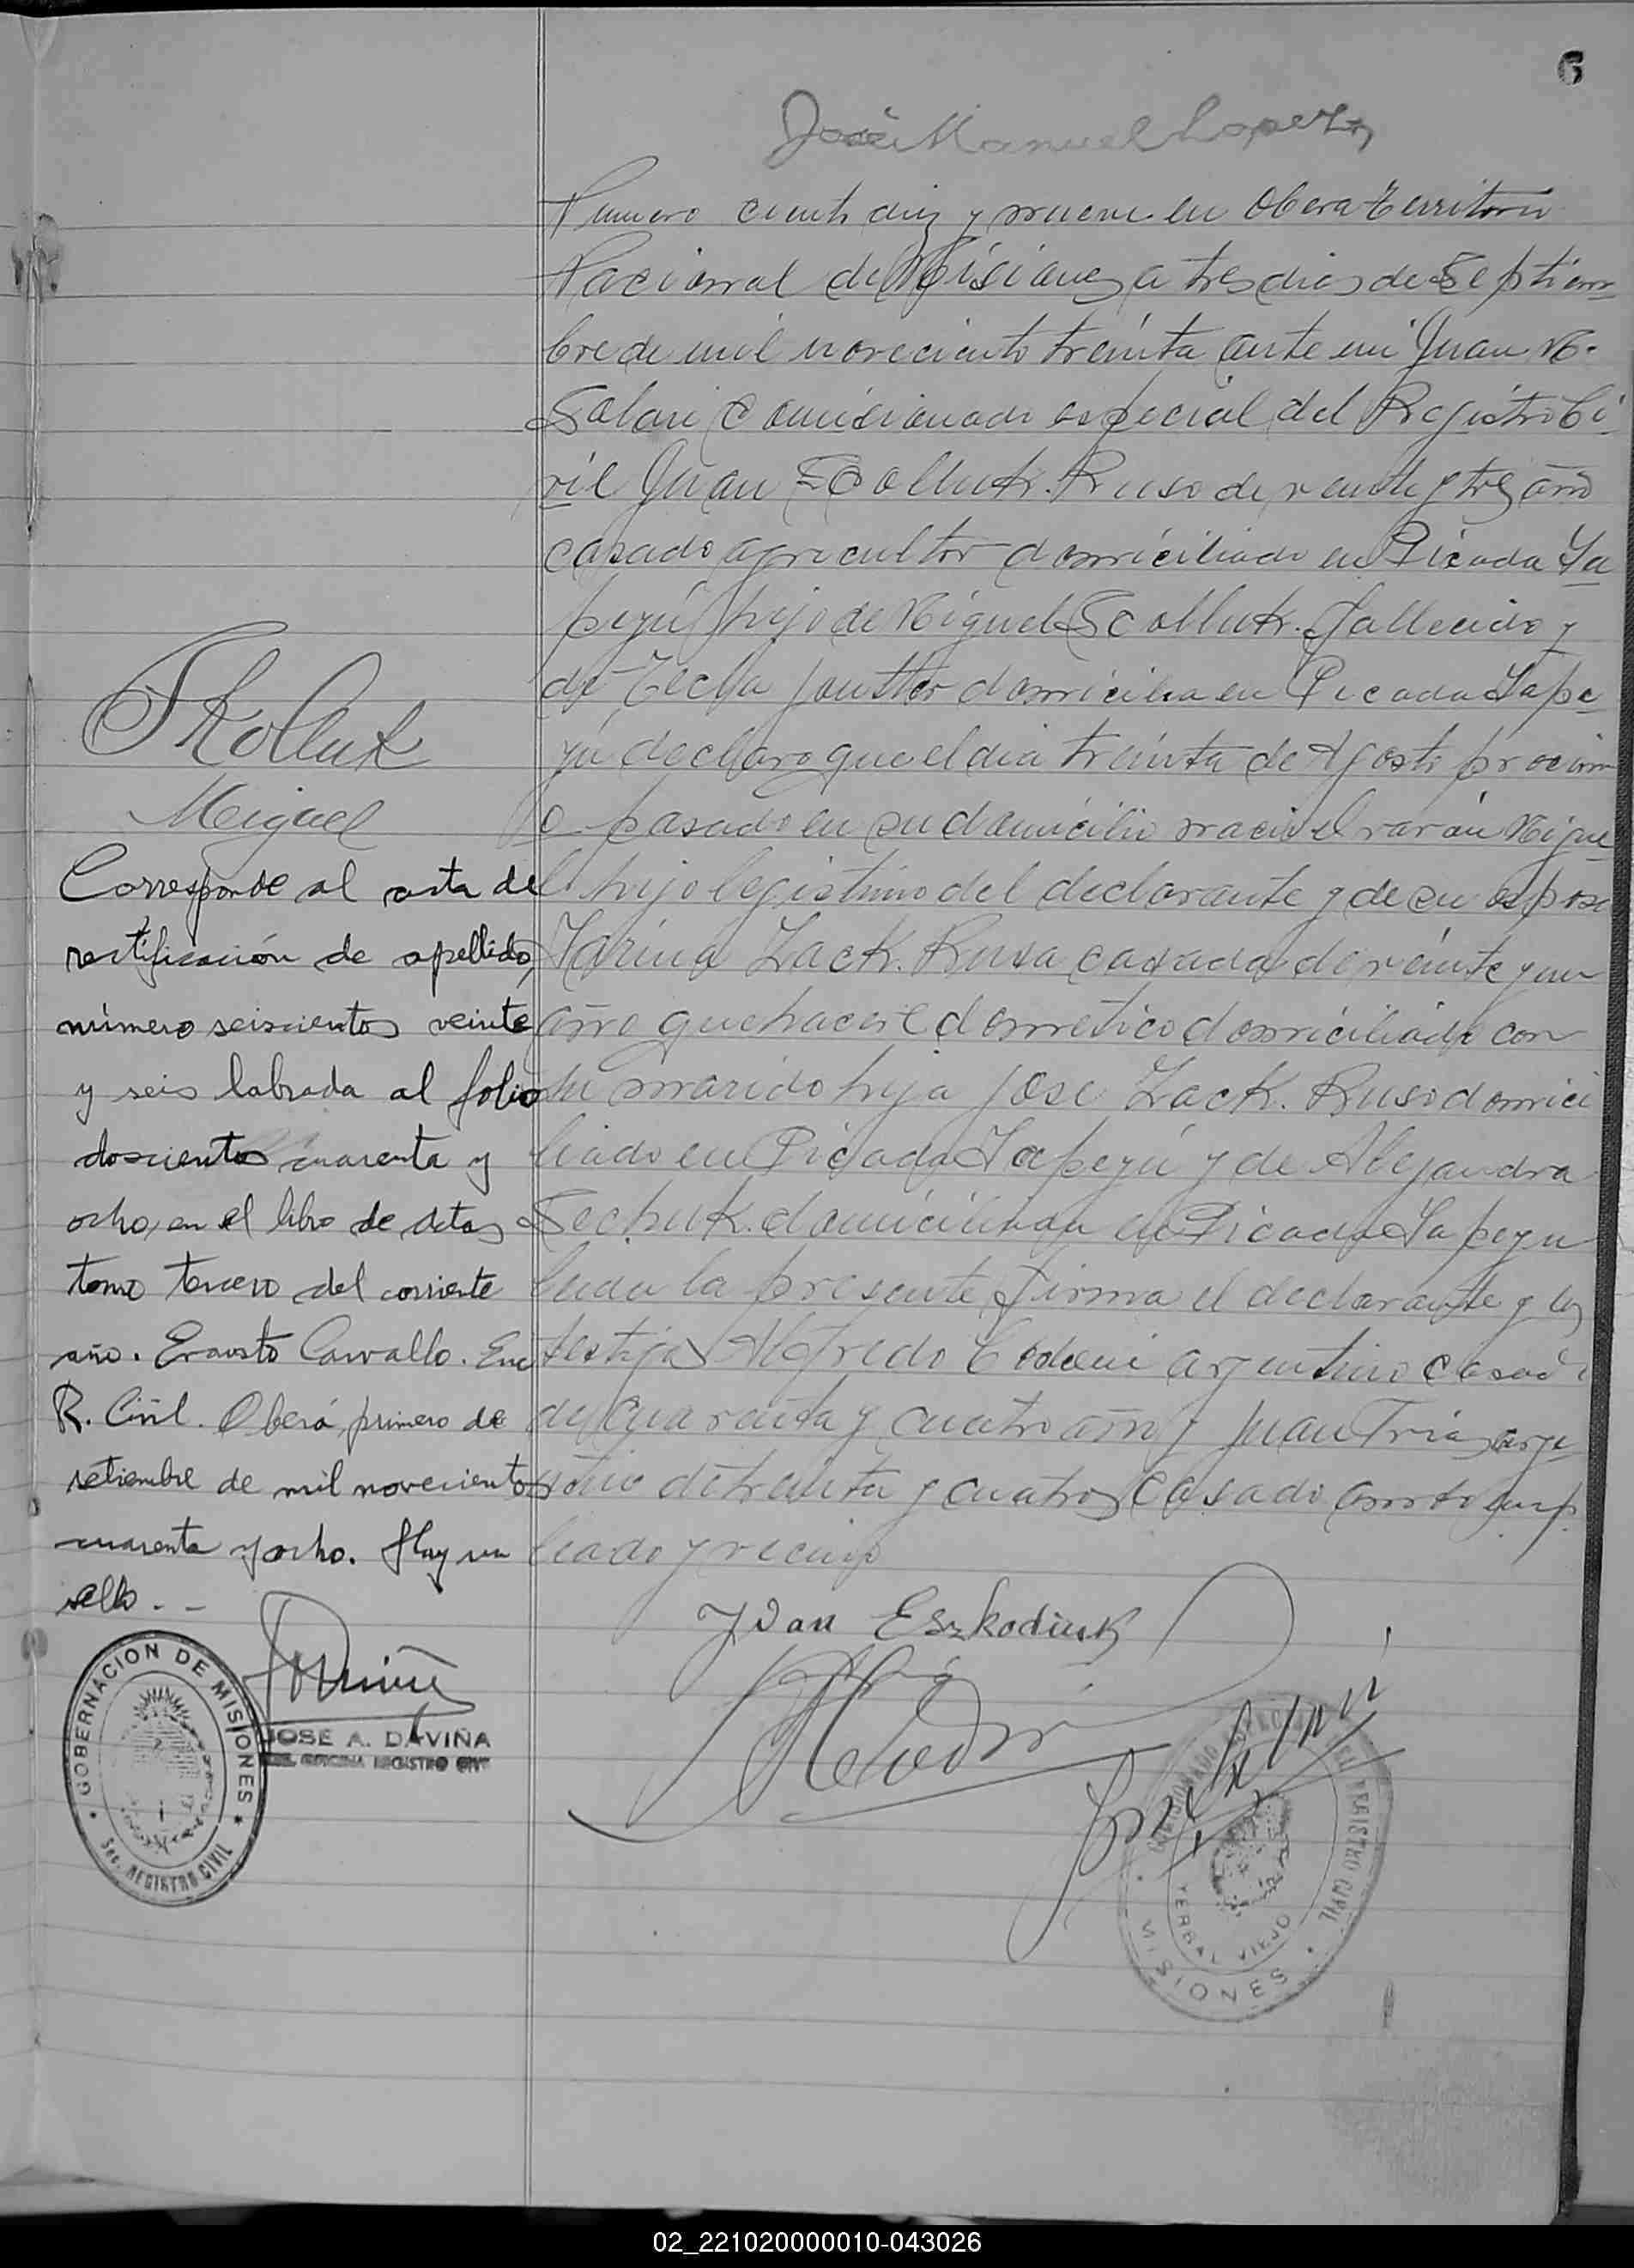 6
José Manuel Lopez
Numero ciento diez y nueve en Obera Territorio
Nacional de Misiones a tres dias de Septiem
bre de mil noveciento treinta ante mi Juan M.
Solari Comisionado especial del Registro Ci
vil Juan Scolluk. Ruso de veinte y tres año
casado agricultor domiciliado en Picada Ya
peyú hijo de Miguel Scolluk. fallecido y
de Tecla domicilia en Picada Yape
yú declaro que el dia treinta de Agosto procim
o pasado en su domicilio nacio el varón Migue
l hijo legistimo del declarante y de su esposa
Marina Zack. Rusa casada de veinte y un
año quehacere dometico domiciliada con
su marido hija Jose Zack. Ruso domici
liado en Picada Yapeyú y de Alejandra
Sechuk. domiciliada en Picada Yapeyu
leida la presente firma el declarante y los
testigos Alfredo argentino casado
de cuarenta y cuatro año y Juan Frias arge
ntino de treinta y cuatro casado emp
leado y vecino
Skolluk
Miguel
Corresponde al acta de
rectificación de apellido,
número seiscientos veinte
y seis labrada al folio
doscientos cuarenta y
ocho, en el libro de actas
tomo tercero del corriente
año. Erausto Carvallo. Enc
R. Civil. Oberá, primero de
setiembre de mil novecientos
cuarenta y ocho. Hay un
sello. -
GOBERNACION DE MISIONES
Sec. REGISTRO CIVIL
JOSE A. DAVIÑA
OFICINA REGISTRO CIVIL
Yvan Eszkodiuk
COMISIONADO ESPECIAL DEL REGISTRO CIVIL
YERBAL VIEJO
MISIONES
02_221020000010-043026